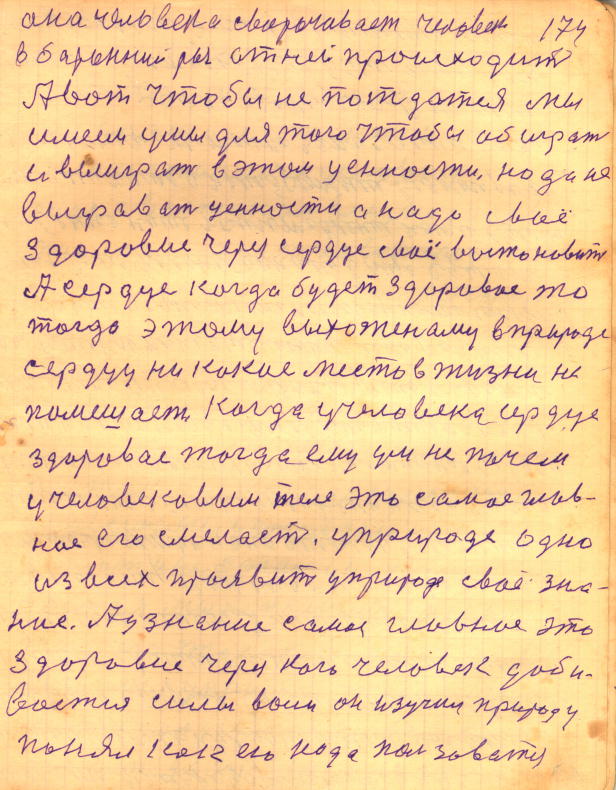 она человека сворачивает человек 174
в баранний рог от ней происходит
А вот чтобы не потдатся мы
имеем умы для того чтобы обиграт
и выиграт в этом ценности, но да не
выграват ценности а надо своё
здоровие через сердце своё востоновит
А сердце когда будет здоровое то
тогда этому выхоженаму в природе
сердцу ни какое место в жизни не
помешает. Когда у человека сердце
здоровае тогда ему ум не почем
у человековым теле это самое глав-
ное его смеласт. у природе одно
из всех проявит у природе своё зна-
ние. А у знание самое главное это
здоровие через кого человек доби-
вается силы воли он изучил природу
понял как ею нада ползоватся